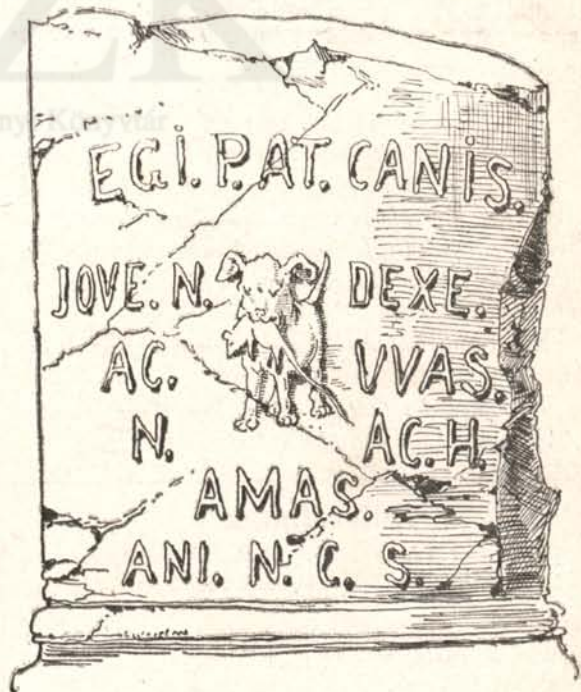 Könyvtár
EGI. P. AT. CANIS.
JOVE. N. DEXE.
AC. VVAS.
N. AC. H.
AMAS.
ANI. N. C. S.